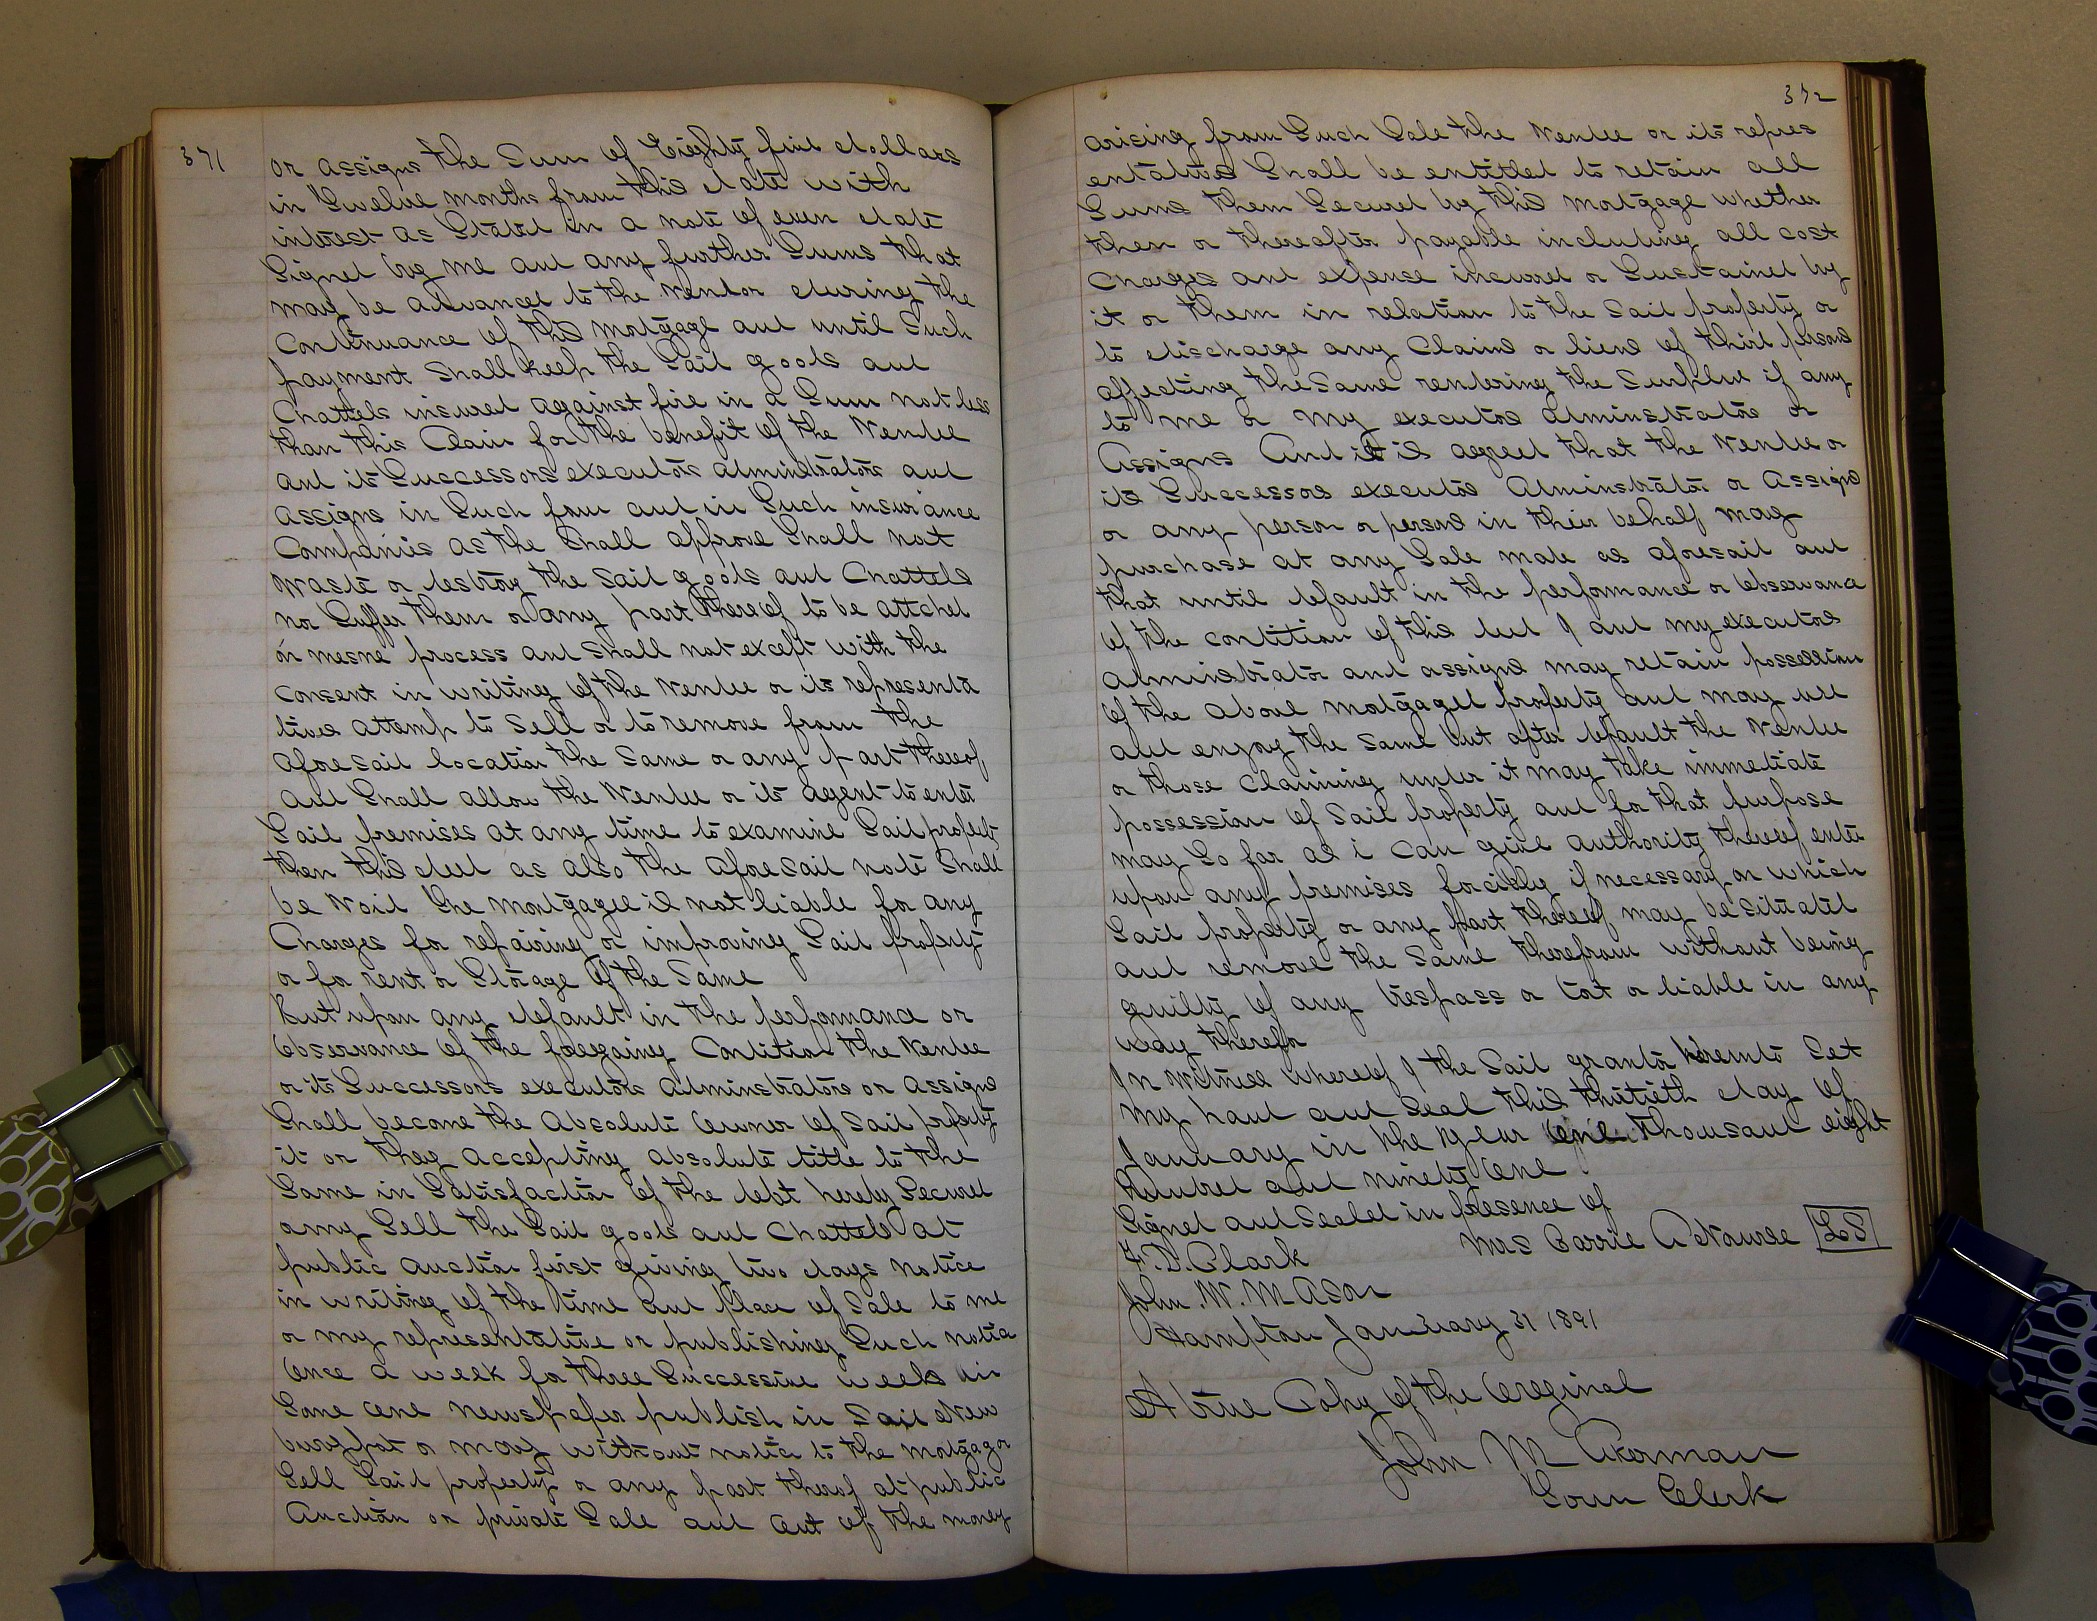 371
or assigns the Sum of Eighty five dollars
in Twelve months from this date with
interest as Stated in a note of even date
Signed by me and any further Sums that
may be advanced to the vendor during the
Continuance of this mortgage and until Such
payment Shall keep the Said goods and
Chattels insured against fire in a Sum not less
than this Claim for the benefit of the Vendee
and its Successors executors administrators and
assigns in Such form and in Such insurance
Companies as the Shall approve Shall not
Waste or destroy the Said goods and Chattels
nor Suffer them or any part thereof to be attched
on mesne process and Shall not except with the
consent in writing of the Vendee or its representa
tives attemp to Sell or to remove from the
aforesaid location the Same or any part thereof
and Shall allow the Vendee or its agent to enter
Said premises at any time to examine Said property
then this deed as also the aforesaid note Shall
be Void The mortgagee is not liable for any
Charges for repairing or improving Said property
or for rent or Storage of the Same
But upon any default in the performance or
Observance of the foregoing Condition the Vendee
or its Successors executors adminstrators or assigns
Shall become the Absolute Owner of Said property
it or they accepting absolute title to the
Same in Satisfaction of the debt hereby Secured
or my Sell the Said goods and Chattels at
public Auction first giving two days notice
in writing of the time and place of Sale to me
or my representative or publishing Such notice
Once a week for three Successive weeks in
Some one newspaper publish in Said New
buryport or may without notice to the mortgagor
Sell Said property or any part therof at public
Auction or private Sale and out of the money
372
arising from Such Sale the Vendee or its repres
entatives Shall be entitled to retain all
Sums them Secured by this mortgage whether
then or thereafter payable including all cost
Charges and expense incurred or Sustained by
it or them in relation to the Said property or
to discharge any Claims or liens of third persons
affecting the Same rendering the Surplus if any
to me or my executors adminstrators or
Assigns And it is agreed that the Vendee or
its Successors executors Adminstrator or Assigns
or any person or persons in their behalf may
purchase at any Sale made as aforesaid and
that until default in the performance or Observance
of the condition of this deed I and my executors
administrator and assigns may retain possession
of the above mortgaged property and may use
and enjoy the Same but after default the Vendee
or those Claiming under it may take immediate
possession of Said property and for that purpose
may So far as i can give authority thereof enter
upon any premises forcibly if necessary on which
Said property or any part thereof may be Situated
and remove the Same therefrom without being
guilty of any trespass or tort or liable in any
way therefor
In Witness Whereof I the Said grantor hereunto Set
my hand and Seal this thirtieth day of
January in the year One thousand eight
hundred and ninety One
Signed and Sealed in presence of
Mrs Carrie A Nawse LS
F. D. Clark
John. W. Mason
Hampton January 31 1891
A true Copy of the Oreginal
John M Akerman
Town Clerk